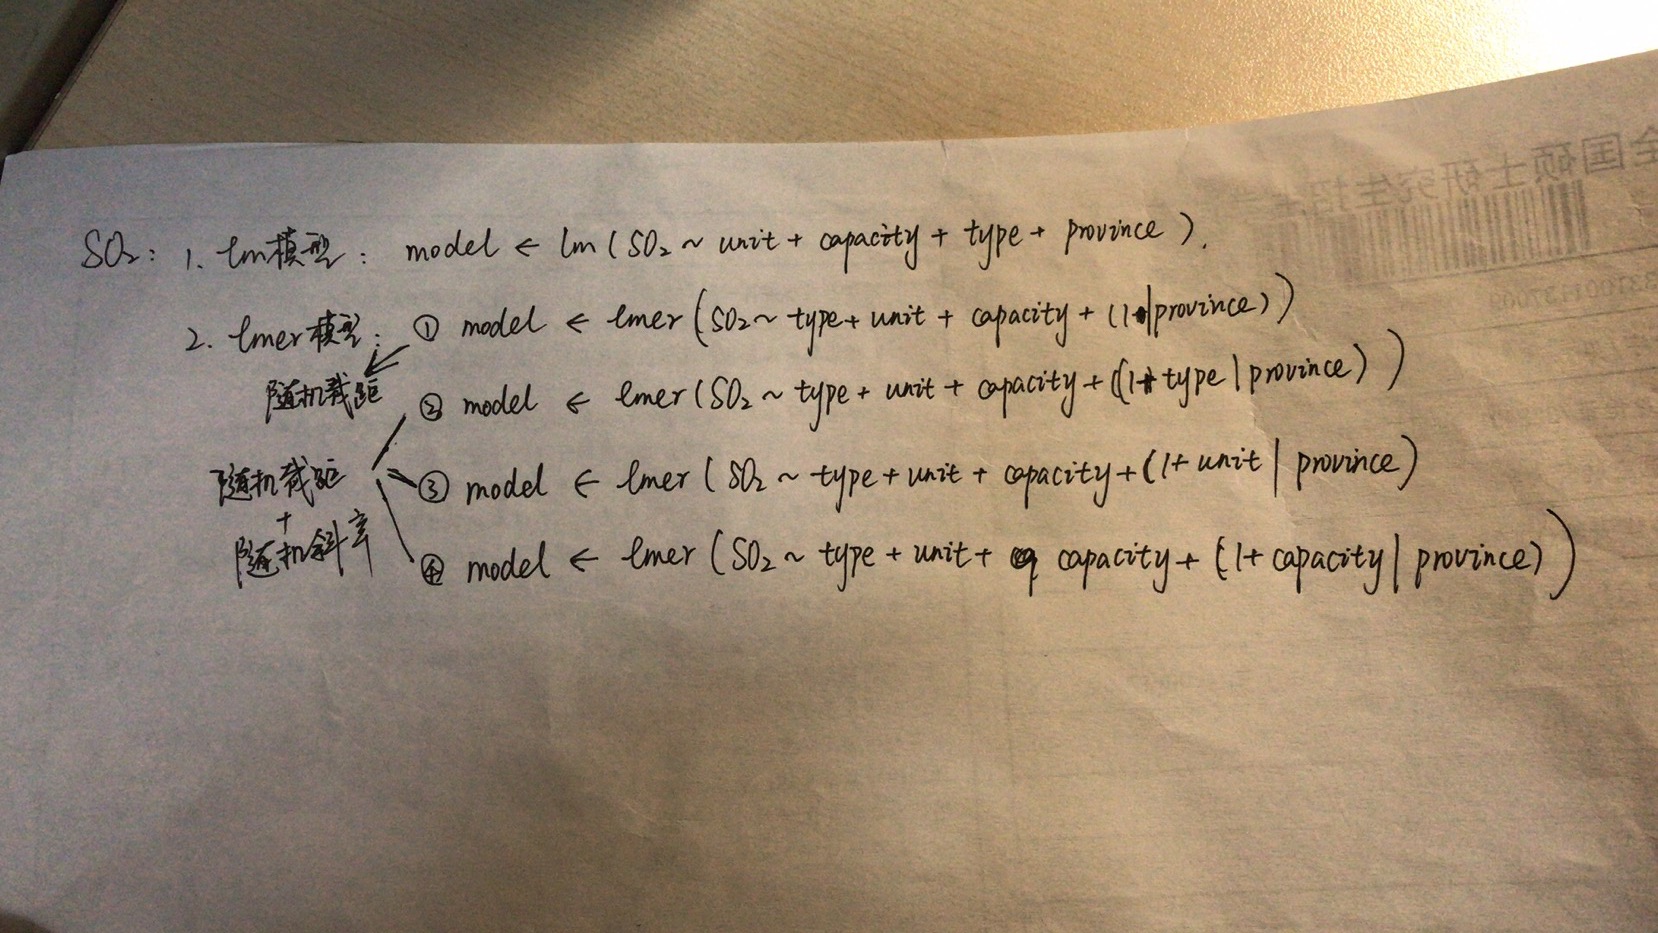 SO₂: 1. lm模型: model ← lm(SO₂ ~ unit + capacity + type + province).
2. lmer模型: ① model ← lmer(SO₂ ~ type + unit + capacity + (1|province))
随机截距
② model ← lmer(SO₂ ~ type + unit + capacity + ((1+ type | province))
随机截距
+
随机斜率
③ model ← lmer(SO₂ ~ type + unit + capacity + (1+ unit | province)
④ model ← lmer(SO₂ ~ type + unit + capacity + (1+ capacity | province))
全国硕士研究生招